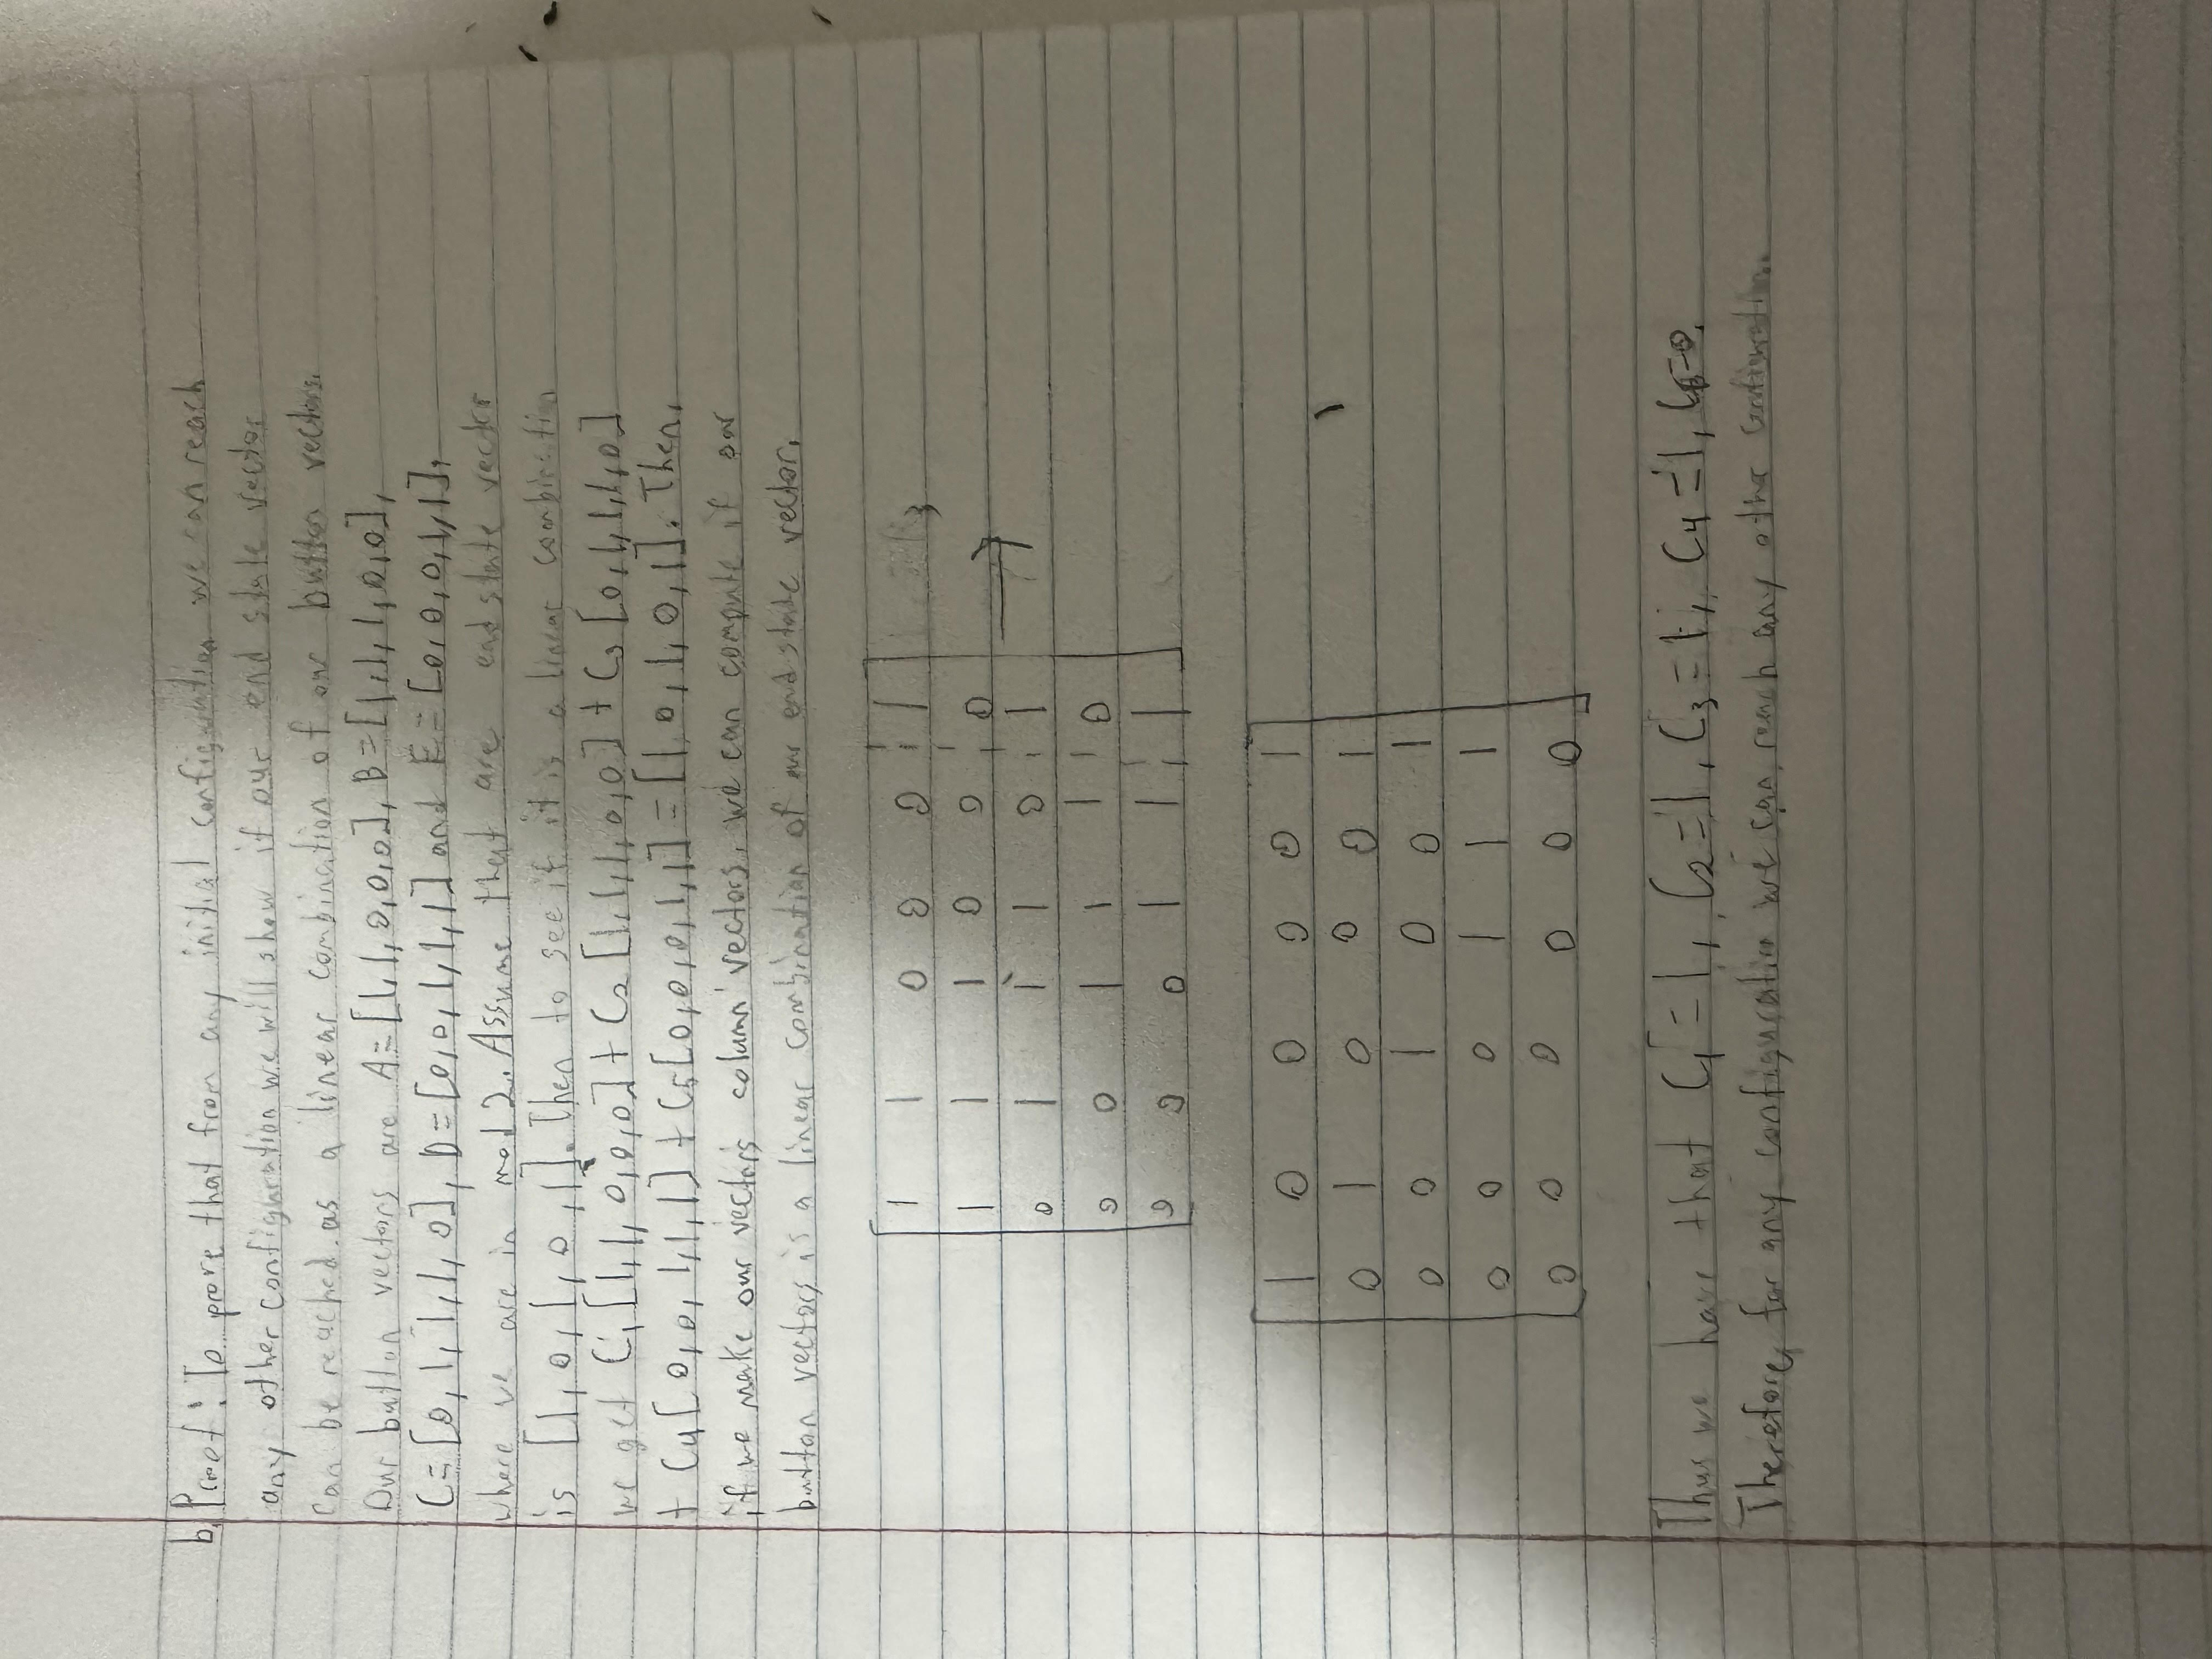 b. Proof: To prove that from any initial configuration we can reach
any other configuration we will show if our end state vector
can be reached as a linear combination of our button vectors.
Our button vectors are A=[1,1,0,0,0], B=[1,1,1,0,0],
C=[0,1,1,1,0], D=[0,0,1,1,1] and E=[0,0,0,1,1],
where we are in mod 2. Assume that are end state vector
is [1,0,1,0,1]. Then to see if it is a linear combination
we get C₁[1,1,0,0,0]+C₂[1,1,1,0,0]+C₃[0,1,1,1,0]
+C₄[0,0,1,1,1]+C₅[0,0,0,1,1]=[1,0,1,0,1]. Then,
if we make our vectors column vectors, we can compute if our
button vectors is a linear combination of our end state vector.
1 1 0 0 0 1
1 1 1 0 0 0
0 1 1 1 0 1
0 0 1 1 1 0
0 0 0 1 1 1
1 0 0 0 0 1
0 1 0 0 0 1
0 0 1 0 0 1
0 0 0 1 1 1
0 0 0 0 0 0
Thus we have that C₁=1, C₂=1, C₃=1, C₄=1, C₅=0.
Therefore, for any configuration we can reach any other configuration.